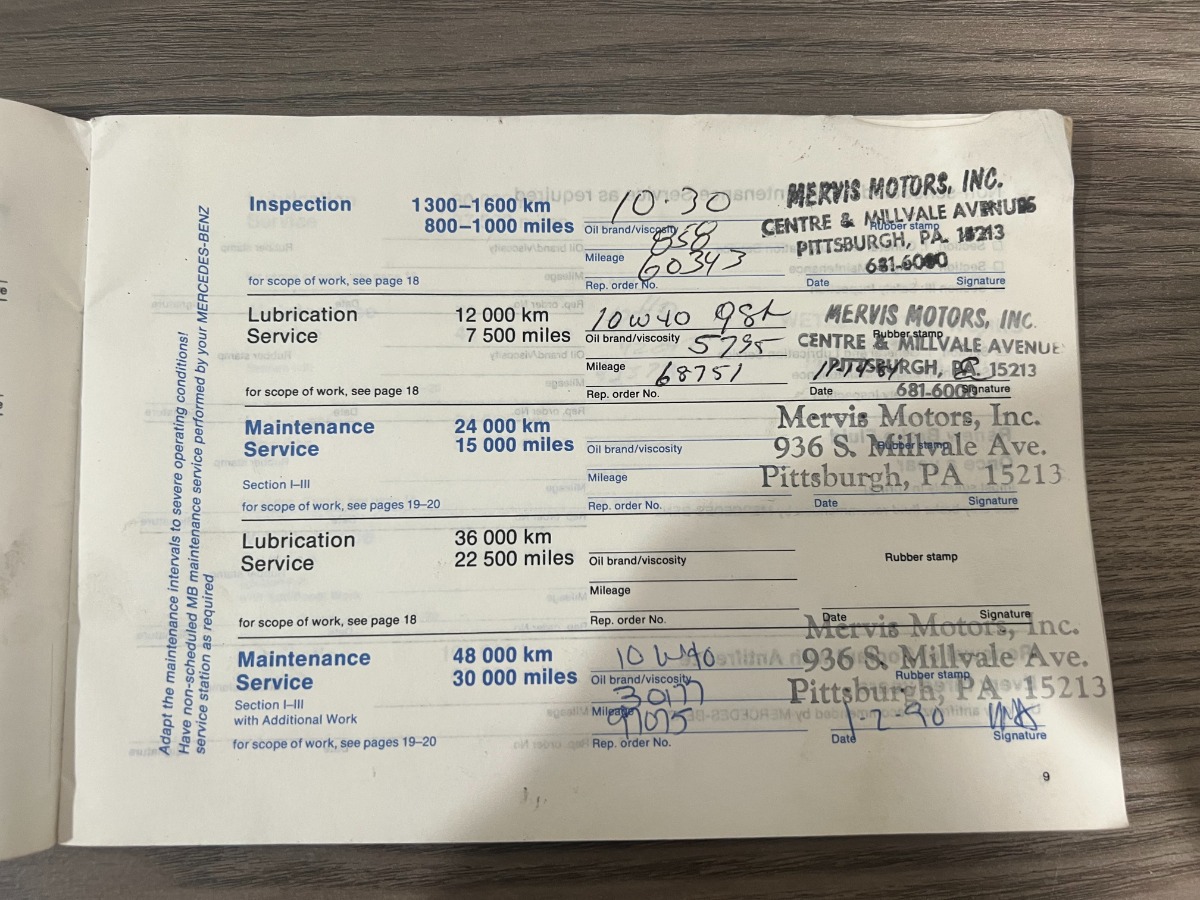 Adapt the maintenance intervals to severe operating conditions!
Have non-scheduled MB maintenance service performed by your MERCEDES-BENZ
service station as required
Inspection 1 300–1 600 km
800–1 000 miles
10·30
Oil brand/viscosity
858
Mileage
60343
Rep. order No.
for scope of work, see page 18
MERVIS MOTORS, INC.
CENTRE & MILLVALE AVENUES
Rubber stamp
PITTSBURGH, PA. 15213
681-6000
Date Signature
Lubrication 12 000 km
Service 7 500 miles
10W40
Oil brand/viscosity
5795
Mileage
68751
Rep. order No.
for scope of work, see page 18
MERVIS MOTORS, INC.
Rubber stamp
CENTRE & MILLVALE AVENUE
PITTSBURGH, PA. 15213
681-6000
Date Signature
Maintenance 24 000 km
Service 15 000 miles
Section I–III
for scope of work, see pages 19–20
Oil brand/viscosity
Mileage
Rep. order No.
Mervis Motors, Inc.
936 S. Millvale Ave.
Rubber stamp
Pittsburgh, PA 15213
Date Signature
Lubrication 36 000 km
Service 22 500 miles
Oil brand/viscosity
Mileage
Rep. order No.
for scope of work, see page 18
Rubber stamp
Date Signature
Maintenance 48 000 km
Service 30 000 miles
Section I–III
with Additional Work
for scope of work, see pages 19–20
10W40
Oil brand/viscosity
30177
Mileage
97075
Rep. order No.
Mervis Motors, Inc.
936 S. Millvale Ave.
Rubber stamp
Pittsburgh, PA 15213
1-2-90
Date Signature
9